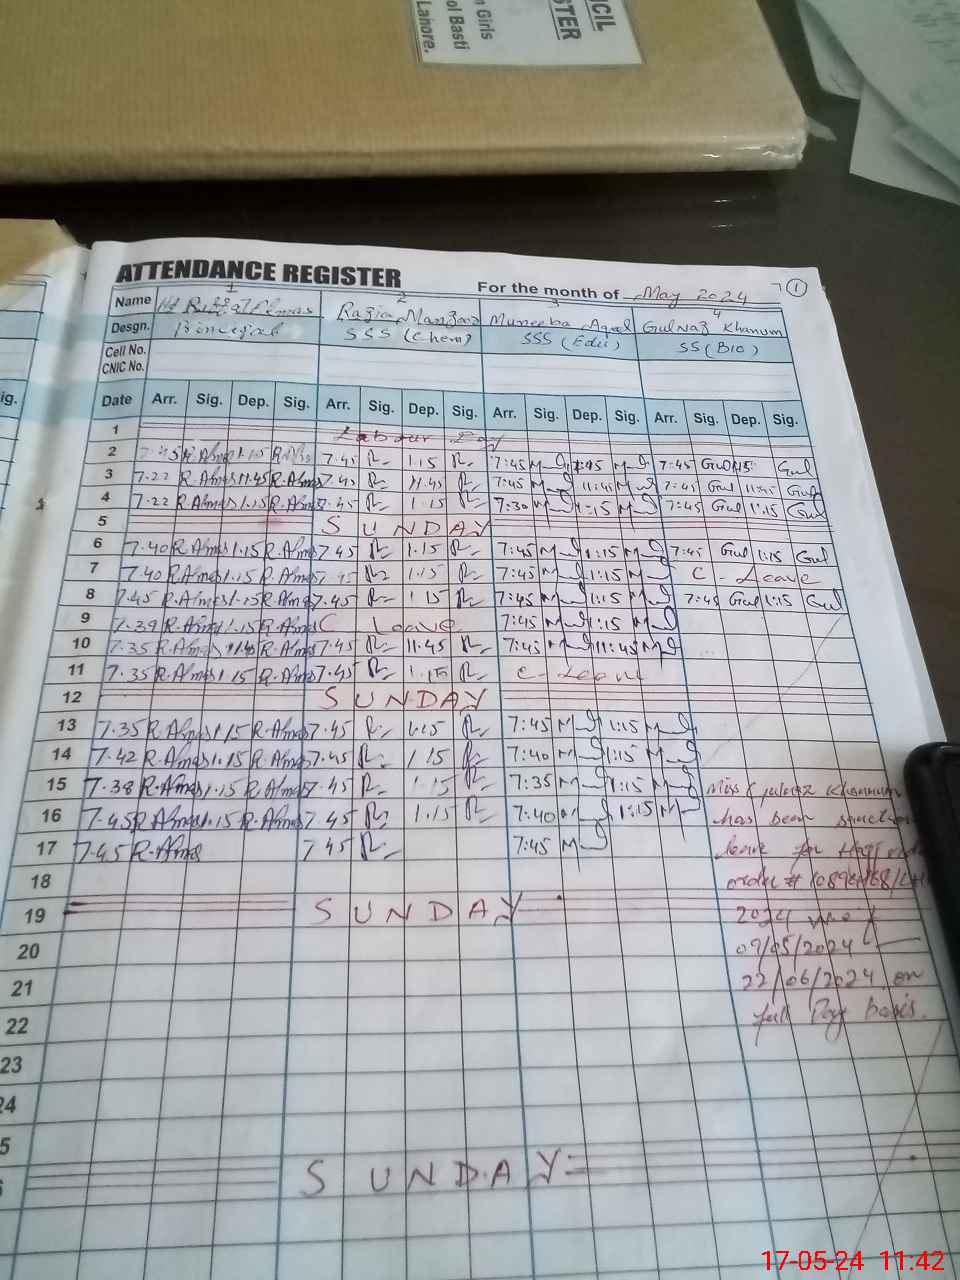 CIL
STER
n Girls
ol Basti
Lahore.
ATTENDANCE REGISTER For the month of May 2024 1
1 2 3 4
Name Razia Manzoor Muneeba Aqal Gulnaz Khanum
Desgn. SSS (Chem) SSS (Edu) SS (BIO)
Cell No.
CNIC No.
ig.
Date Arr. Sig. Dep. Sig. Arr. Sig. Dep. Sig. Arr. Sig. Dep. Sig. Arr. Sig. Dep. Sig.
1 Labour Day
2 7.45 R.Almas 1.15 R.Almas 7.45 R 1.15 R 7:45 M 1:15 M 7:45 Gul 1:15 Gul
3 7.22 R.Almas 11.45 R.Almas 7.45 R 11.45 R 7:45 M 11:45 M 7:45 Gul 11:45 Gul
4 7.22 R.Almas 1.15 R.Almas 7.45 R 1.15 R 7:30 M 1:15 M 7:45 Gul 1:15 Gul
5 SUNDAY
6 7.40 R.Almas 1.15 R.Almas 7.45 R 1.15 R 7:45 M 1:15 M 7:45 Gul 1:15 Gul
7 7.40 R.Almas 1.15 R.Almas 7.45 R 1.15 R 7:45 M 1:15 M C - Leave
8 7.45 R.Almas 1.15 R.Almas 7.45 R 1.15 R 7:45 M 1:15 M 7:45 Gul 1:15 Gul
9 7.39 R.Almas 1.15 R.Almas C Leave 7:45 M 1:15 M
10 7.35 R.Almas 11.45 R.Almas 7.45 R 11.45 R 7:45 M 11:45 M
11 7.35 R.Almas 1.15 R.Almas 7.45 R 1.15 R C - Leave
12 SUNDAY
13 7.35 R.Almas 1.15 R.Almas 7.45 R 1.15 R 7:45 M 1:15 M
14 7.42 R.Almas 1.15 R.Almas 7.45 R 1.15 R 7:40 M 1:15 M
15 7.38 R.Almas 1.15 R.Almas 7.45 R 1.15 R 7:35 M 1:15 M
16 7.45 R.Almas 1.15 R.Almas 7.45 R 1.15 R 7:40 M 1:15 M
17 7.45 R.Almas 7.45 R 7:45 M
Miss Gulnaz Khannum
has been
leave for Hajj
order #
2024
09/05/2024
22/06/2024 on
full Pay basis.
18
19 SUNDAY
20
21
22
23
24
5
SUNDAY
17-05-24 11:42